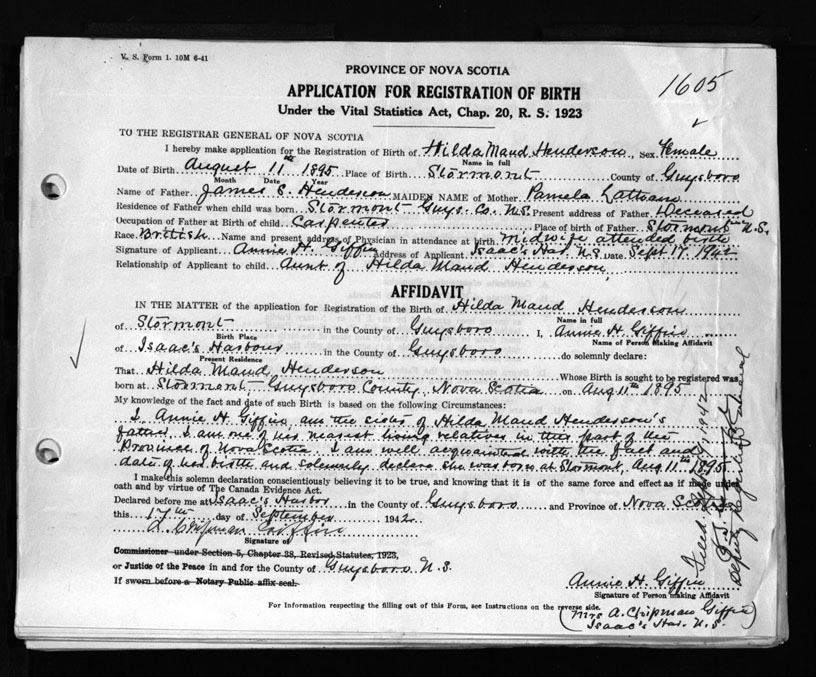 V. S. Form 1. 10M 6-41
PROVINCE OF NOVA SCOTIA
1605
APPLICATION FOR REGISTRATION OF BIRTH
Under the Vital Statistics Act, Chap. 20, R. S. 1923
TO THE REGISTRAR GENERAL OF NOVA SCOTIA
I hereby make application for the Registration of Birth of Hilda Maud Henderson, Sex Female
Name in full
Date of Birth August 11th 1895 Place of Birth Stormont County of Guysboro
Month Date Year
Name of Father James E. Henderson MAIDEN NAME of Mother Pamela
Residence of Father when child was born Stormont Guys. Co. N.S. Present address of Father Deceased
Occupation of Father at Birth of child Carpenter Place of birth of Father Stormont N.S.
Race British Name and present address of Physician in attendance at birth Midwife attended birth
Signature of Applicant Annie H. Giffin Address of Applicant Isaac's Har. N.S. Date Sept 17. 1942
Relationship of Applicant to child Aunt of Hilda Maud Henderson
AFFIDAVIT
IN THE MATTER of the application for Registration of the Birth of Hilda Maud Henderson
Name in full
of Stormont in the County of Guysboro I, Annie H Giffin
Birth Place Name of Person Making Affidavit
of Isaac's Harbour in the County of Guysboro do solemnly declare:
Present Residence
That Hilda Maud Henderson Whose Birth is sought to be registered was
born at Stormont, Guysboro County, Nova Scotia on Aug 11th 1895
My knowledge of the fact and date of such Birth is based on the following Circumstances:
I Annie H. Giffin, am the sister of Hilda Maud Henderson's
father, I am one of her nearest living relatives in this part of the
Province of Nova Scotia. I am well acquainted with the fact and
date of her birth and solemnly declare she was born at Stormont, Aug 11th 1895
I make this solemn declaration conscientiously believing it to be true, and knowing that it is of the same force and effect as if made under
oath and by virtue of The Canada Evidence Act.
Declared before me at Isaac's Harbor in the County of Guysboro and Province of Nova Scotia
this 17th day of September 1942
A. Chipman Giffin
Signature of
Commissioner under Section 5, Chapter 38, Revised Statutes, 1923,
or Justice of the Peace in and for the County of Guysboro N.S.
If sworn before a Notary Public affix seal.
Annie H. Giffin
Signature of Person Making Affidavit
For Information respecting the filling out of this Form, see Instructions on the reverse side.
(Mrs A. Chipman Giffin)
Isaac's Har. N.S.
Filed 1942
Deputy Registrar General